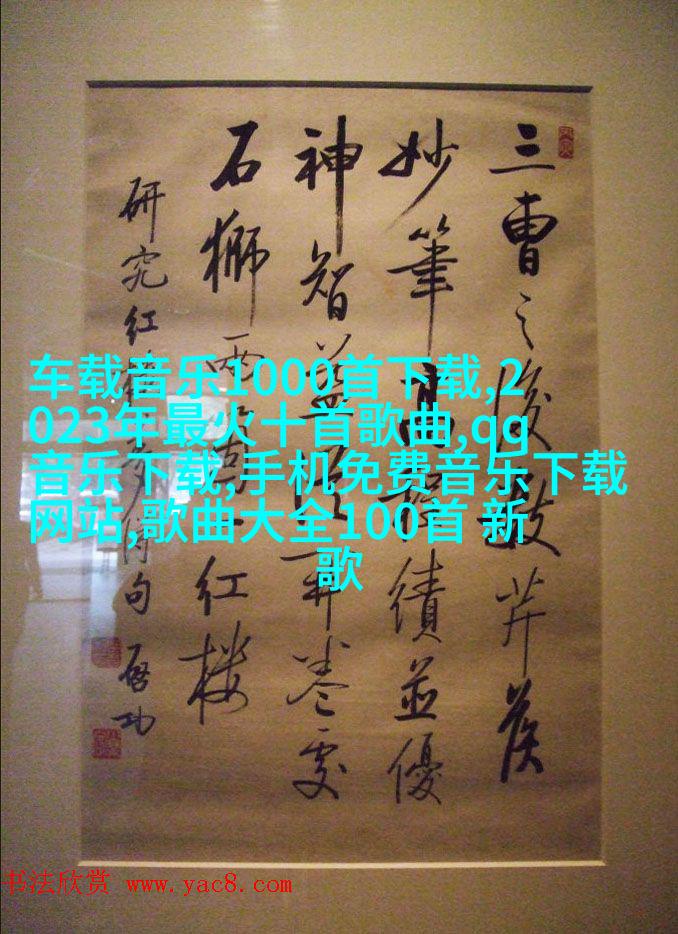 三曹之後數芹侯
妙筆高程績並優
神智益從開卷處
石獅兩箇一紅樓
研究紅樓夢句 啓功
车载音乐1000首下载,2
023年最火十首歌曲,qq
音乐下载,手机免费音乐下载
网站,歌曲大全100首 新
歌
书法欣赏 www.yac8.com